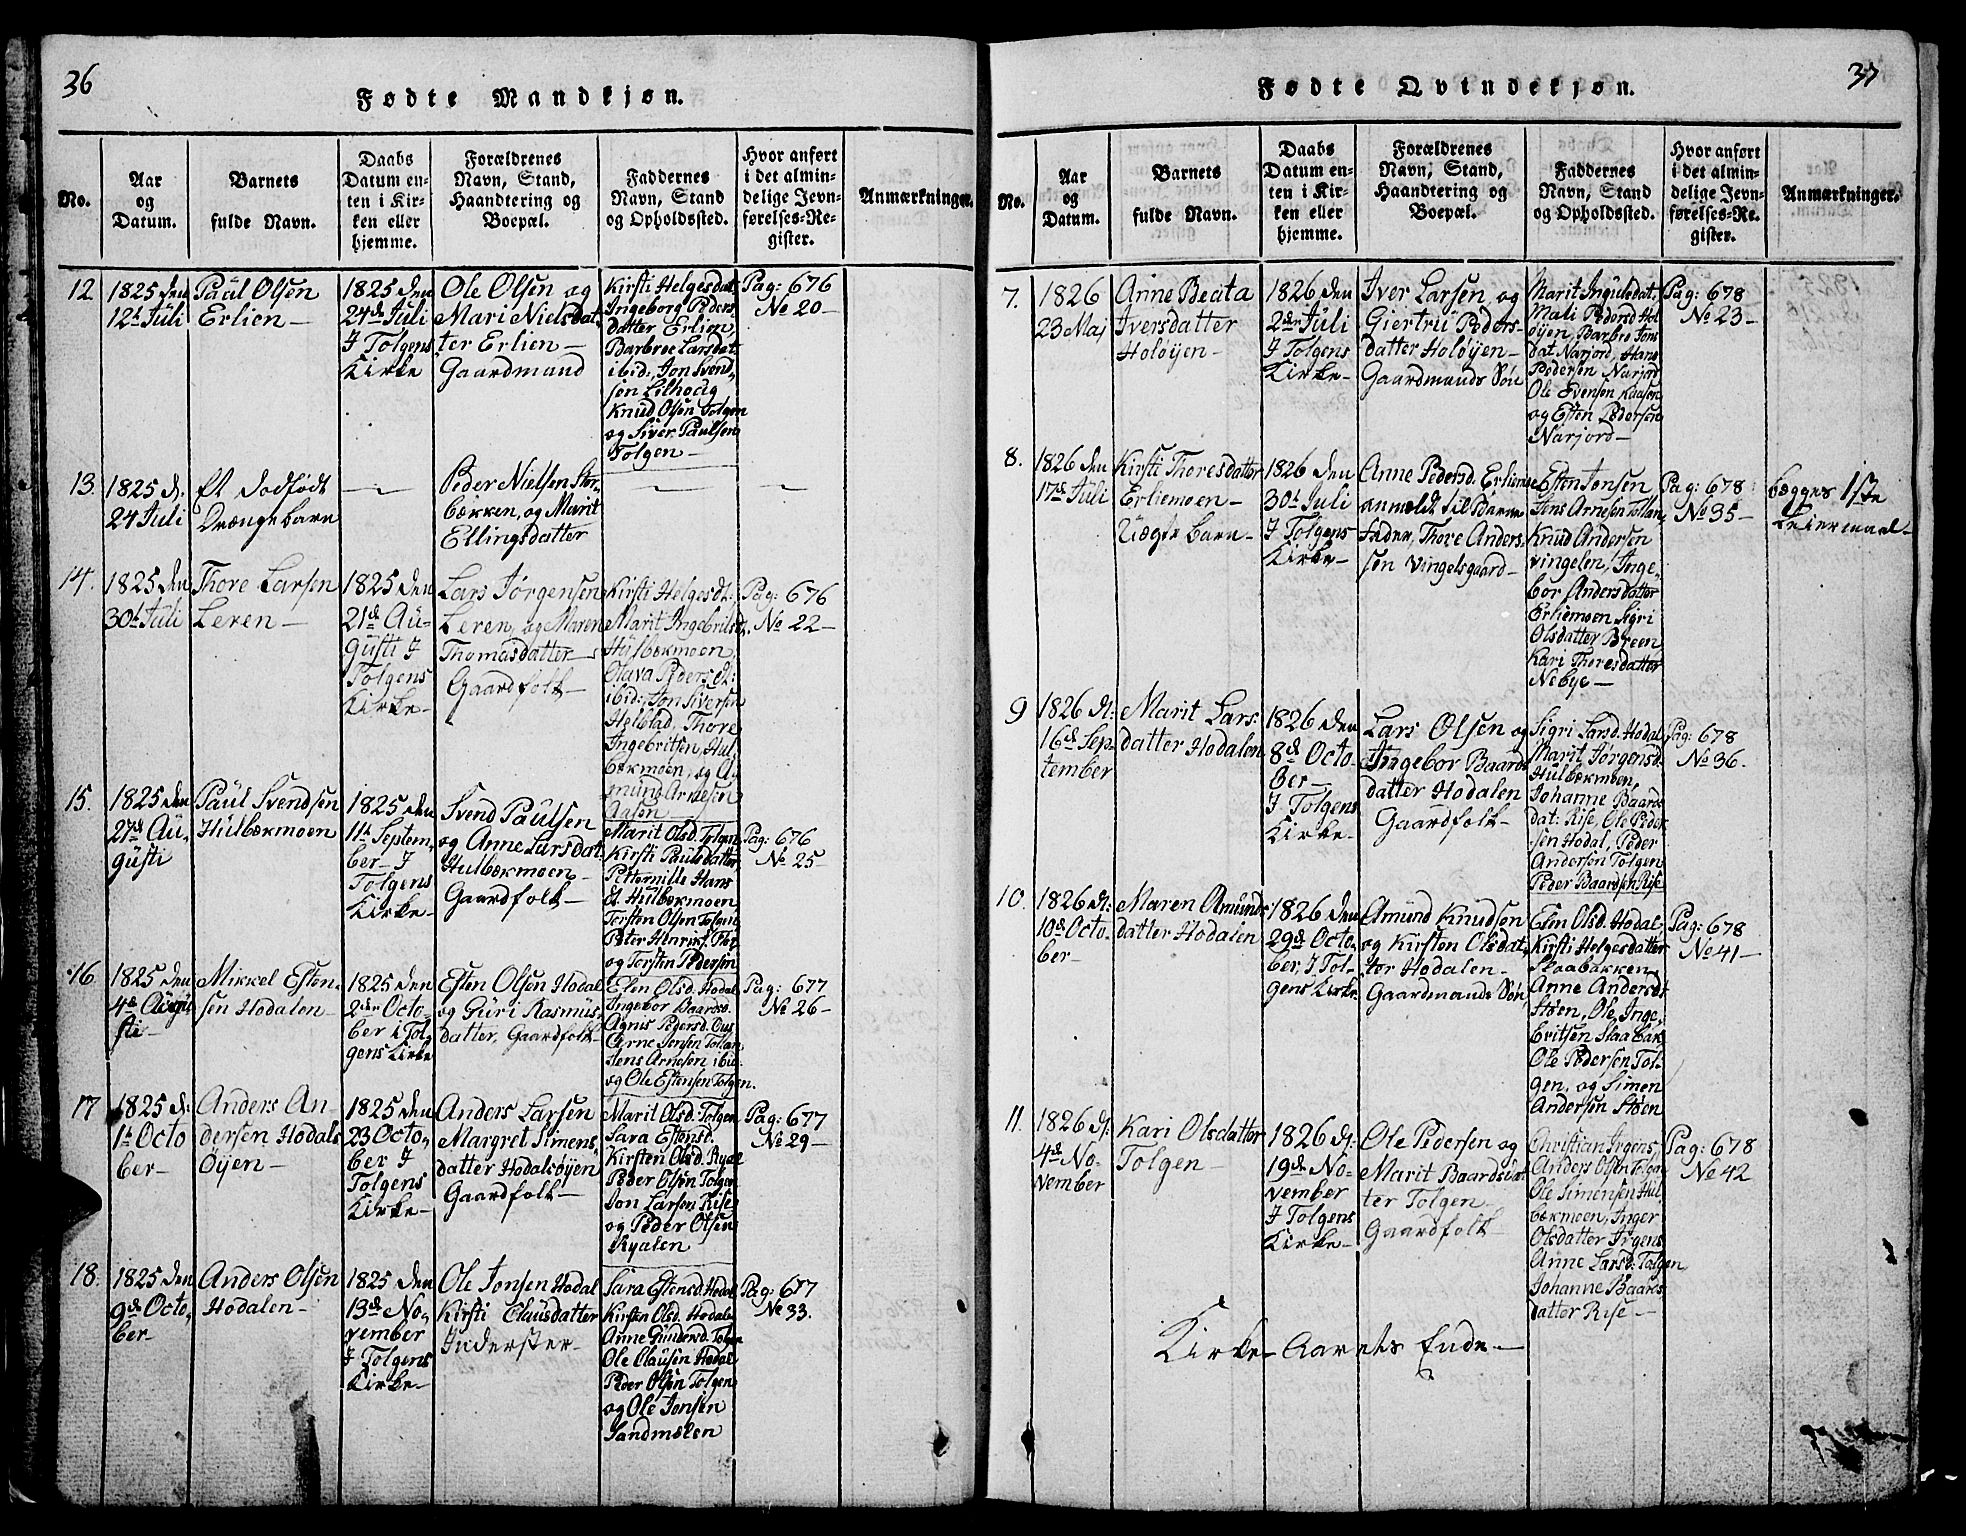 36
Fødte Mandkjøn.
No.
Aar
og
Datum.
Barnets
fulde Navn.
Daabs
Datum en-
ten i Kir-
ken eller
hjemme.
Forældrenes
Navn, Stand,
Haandtering og
Boepæl.
Faddernes
Navn, Stand
og Opholdssted.
Hvor anført
i det almin-
delige Jevn-
førelses-Re-
gister.
Anmærkninger.
12
1825 den
12t Juli
Paul Olsen
Erlien—
1825 den
24de Juli
I Tolgens
Kirke
Ole Olsen og
Mari Nielsdat
ter Erlien—
Gaardmand
Kirsti Helgesdat
Ingeborg Peders
datter Erlien,
Barbroe Larsdat
ibid:, Jon Svend
sen Lilhoeig
Knud Olsen Tolgen
og Siver Paulsen
Tolgen—
Pag: 676
No 20—
13.
1825 d.
24 Juli
Et dødfødt
Drængebarn
—
Peder Nielsen Stor-
bækken, og Marit
Ellingsdatter
—
—
14.
1825 den
30t Juli
Thore Larsen
Leren—
1825 den
21de Au-
gusti I
Tolgens
Kirke—
Lars Jørgensen
Leren, og Maren
Thomasdatter—
Gaardfolk—
Kirsti Helgesdt:
Marit Ingebrilsd.
Hulbækmoen,
Olava Peders dt:
ibid:, Jon Siversen
Helstad, Thore
Ingebritsen Hul
bækmoen, og A
mund Arnesen
Aasen
Pag: 676
No 22—
15.
1825 den
27de Au-
gusti
Paul Svendsen
Hulbækmoen
1825 den
11t Septem-
ber— I
Tolgens
Kirke—
Svend Paulsen
og Anne Larsdat
Hulbækmoen—
Gaardfolk—
Marit Olsd. Tolgen
Kirsti Paulsdatter
Petternille Hans
dt. Hulbækmoen
Torsten Olsen Tolgen
Peter Henriks.
og Torsten Pedersen
Pag: 676
No 25—
16
1825 den
4de Augu
sti—
Mikkel Esten-
sen Hodalen—
1825 den
2den Octo-
ber i Tol-
gens Kirke
Esten Olsen Hodal
og Guri Rasmus
datter, Gaardfolk—
Elen Olsd. Hodal
Ingebor Baardsd.
Agnis Pedersd.
Arne Jensen
Jens Arnesen ibid
og Ole Estensen Tolgen.
Pag: 677
No 26—
17
1825 d:
1t Octo
ber—
Anders An-
dersen Hodals
Øijen—
1825 den
23 Octo-
ber I
Tolgens
Kirke—
Anders Larsen
Margret Simens
datter Hodalsøijen
Gaardfolk—
Marit Olsd. Tolgen
Sara Estensd.
Kirsten Olsd. Ryal
Peder Olsen Tolgen
Jon Larsen Rise
og Peder Olsen
Ryalen
Pag: 677
No 29—
18.
1825 den
9de Octo-
ber—
Anders Olsen
Hodalen—
1825 den
13de No-
vember
I Tolgens
Kirke—
Ole Jonsen Hodal
Kirsti Clausdatter
Inderster—
Sara Estensd. Hodal
Kirsten Olsd. Hodalen
Anne Gundersd. Tolgen
Ole Clausen Hodal
Peder Olsen Tolgen
og Ole Jonsen
Sandmælen
Pag: 677
No 33.
37
Fødte Qvindekjøn.
No.
Aar
og
Datum.
Barnets
fulde Navn.
Daabs
Datum en-
ten i Kir-
ken eller
hjemme.
Forældrenes
Navn, Stand,
Haandtering og
Boepæl.
Faddernes
Navn, Stand
og Opholdssted.
Hvor anført
i det almin-
delige Jevn-
førelses-Re-
gister.
Anmærkninger.
7.
1826
23 Maj
Anne Beata
Iversdatter
Holøyen—
1826 den
2den Juli
I Tolgens
Kirke—
Iver Larsen og
Giertru Peders-
datter Holøyen—
Gaardmands Søn
Marit Ingulsdat.
Mali Pedersd Hol
øyen, Barbro Jons
dat Narjord, Hans
Pedersen Narjord
Ole Evensen Kaasen
og Esten Pedersen
Narjord—
Pag: 678
No 23—
8.
1826 den
17de Juli
Kirsti Thoresdatter
Erliemoen—
Uægte barn—
1826 den
30t Juli
I Tolgens
Kirke—
Anne Pedersd. Erliemoe
anmeldt til Barne
fader, Thore Anders
sen Vingelsgaard—
Esten Jensen
Jens Arnesen
Knud Andersen
vingelen, Inge-
bor Andersdatter
Erliemoen Sigri
Olsdatter Breen
Kari Thoresdatter
Nebye—
Pag: 678
No 35—
begges 1ste
Leiermaal—
9
1826 d:
16de Sep-
tember
Marit Lars:
datter Hodalen
1826 den
8de Octo
ber—
I Tolgens
Kirke—
Lars Olsen og
Ingebor Baards
datter Hodalen
Gaardfolk—
Sigri Larsd. Hodal
Marit Jørgensd.
Hulbækmoen,
Johanne Baards
dat: Rise, Ole Peder
sen Hodal, Peder
Andersen Tolgen
Peder Baardsen Rise
Pag: 678
No 36.
10.
1826 d:
10de Octo-
ber—
Maren Amunds
datter Hodalen
1826 den
29de Octo-
ber, I Tol-
gens Kirke
Amund Knudsen
og Kirsten Olsdat
ter Hodalen—
Gaardmands Søn
Elen Olsd. Hodal
Kirsti Helgesdatter
Staabækken
Anne Andersdt
Støen, Ole Inge-
britsen Staabæk
Ole Pedersen Tol-
gen, og Simen
Andersen Støen
Pag: 678
No 41—
11.
1826 d.
4de No-
vember
Kari Olsdatter
Tolgen—
1826 d.
19de No-
vember
I Tolgens
Kirke—
Ole Pedersen og
Marit Baardsdat
ter Tolgen
Gaardfolk—
Christian Irgens
Anders Olsen Tolgen
Ole Simensen Hul
bækmoen, Inger
Olsdatter Irgens
Anne Larsd: Tolgen
Johanne Baards
datter Rise—
Pag: 678
No 42
Kirke— Aarets Ende—